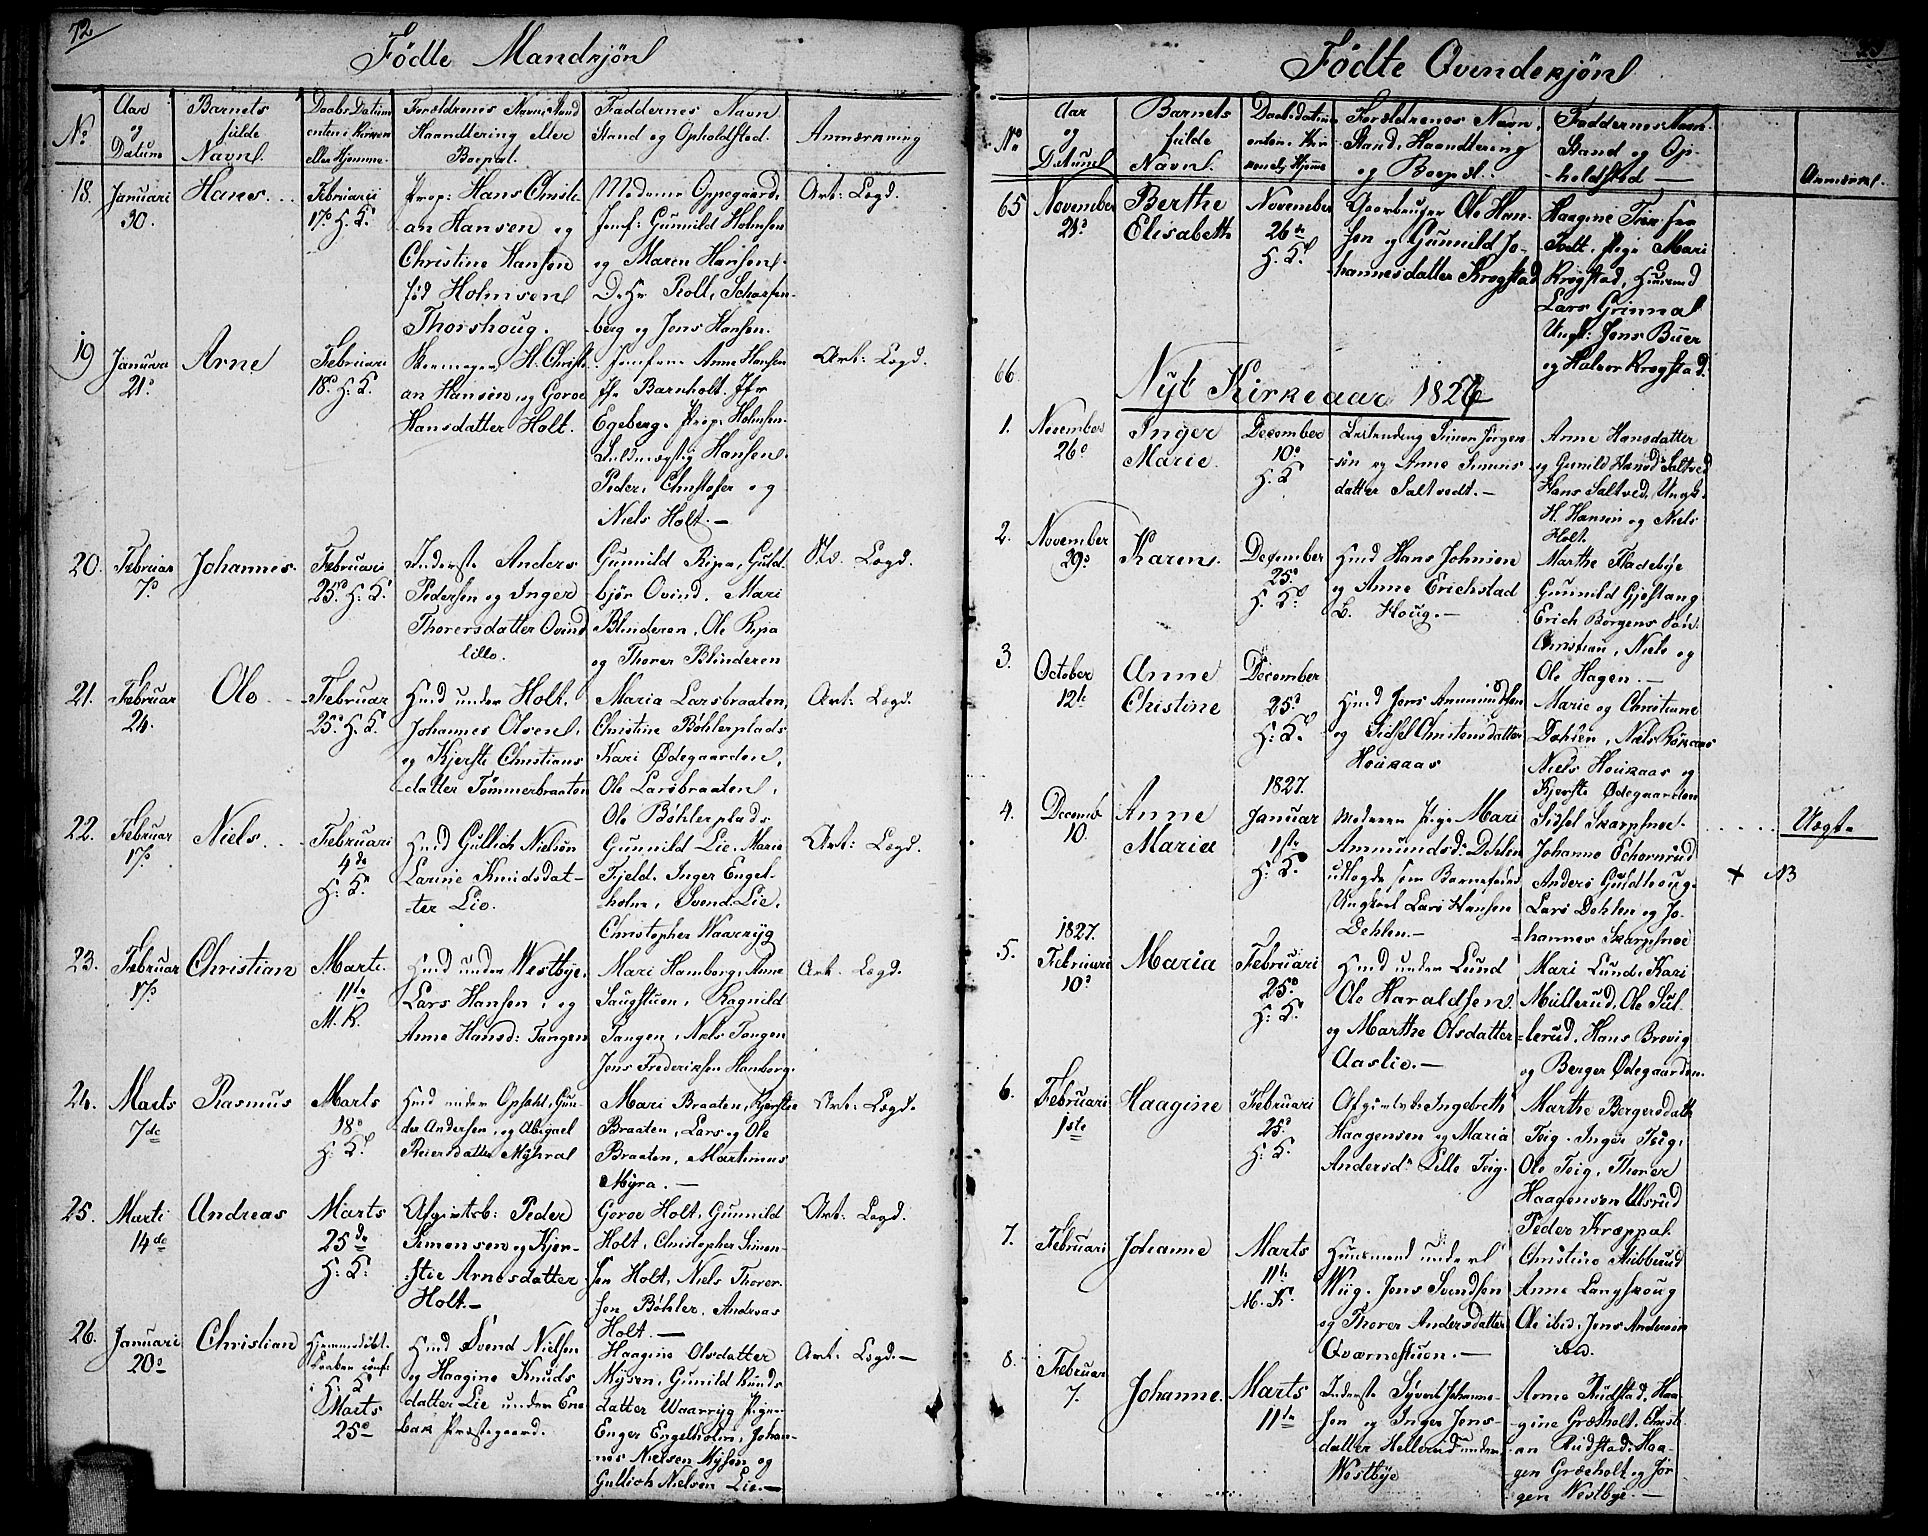 72
Fødte Mandkjøn
No
Aar
og
Datum
Barnets
fulde
Navn
Daabs Datum
enten i Kirken
eller Hjemme
Forældrenes Navne Stand
Haandtering eller
Bopæl
Faddernes Navn
Stand og Opholdsted
Anmærkning
18.
Januari
30.
Hans
Februarii
17de H: K:
Prop: Hans Christi-
an Hansen og
Christine Hansen
fød Holmsen
Thorshoug.
Madame Oppegaard,
Jomf: Gunnild Holmsen
og Maren Hansen
D. Hr Roll, Scharfen-
berg og Jens Hansen.
Art: Lægd.
19
Januar
21
Arne
Februari
18 H: K:
H. Christi-
an Hansen og Goroe
Hansdatter Holt.
Jomfrue Anne Hansen
Barnholt. Jfr
Egeberg. Prop: Holmsen
Fuldmægtig Hansen,
Peder, Christofer og
Niels Holt.
Art: Lægd.
20.
Februar
7
Johannes
Februari
25 H: K:
Inderste Anders
Pedersen og Inger
Thorersdatter Ovind
lille.
Gunnild Ripa, Guld-
bjør Ovind, Mari
Blinderen, Ole Ripa
og Thorer Blinderen
Lægd.
21.
Februar
24.
Ole
Februar
25 H: K:
Husd under Holt,
Johannes Olsen,
og Kjersti Christians
datter Tømmerbraaten
Maria Larsbraaten,
Christine Bøhlerplads
Kari Ødegaarden,
Ole Larsbraaten,
Ole Bøhlerplads
Art: Lægd.
22.
Februar
17
Niels
Februari
4de
H: K:
Husd Gullich Nielsen
Larine Knudsdat-
ter Lie.
Gunnild Lie, Marie
Fjeld, Inger Engel-
holm, Svend Lie,
Christopher Waarryg
Art: Lægd.
23.
Februar
17
Christian
Marti
11te
M. K.
Husd under Westbye,
Lars Hansen, og
Anne Hansd: Tangen
Mari Hamborg, Anne
Saugstuen, Ragnild
Tangen, Niels Tangen
Jens Frederiksen Hamborg.
Art. Lægd.
24.
Marts
7de
Rasmus
Marts
18
H: K:
Husd under Opsahl, Gun-
der Andersen, og Abigael
Reiersdatter Myhral
Mari Braaten, Kjerstie
Braaten, Lars og Ole
Braaten, Martinus
Myra.
Art: Lægd.
25.
Marti
14de
Andreas
Marts
25de
H: K:
Afgivtsb: Peder
Simensen og Kjer-
stie Arnesdatter
Holt.
Goroe Holt, Gunnild
Holt, Christopher Simen-
sen Holt, Niels Thorer-
sen Bøhler, Andreas
Holt.
Art: Lægd.
26.
Januari
20
Christian
Hjemmedøbt
Daaben
H: K:
Marts
25
Husd Svend Nielsen
og Haagine Knuds
datter Lie under Ene-
bak Præstegaard.
Haagine Olsdatter
Mysen, Gunild Knuds
datter Waarryg Pigen
Enger Engelholm, Johan-
nes Nielsen Mysen og
Gullich Nielsen Lie.
Art: Lægd.
Fødte Qvindekjøn
No
Aar
og
Datum
Barnets
fulde
Navn
Daabsdatum
enten i Kir-
ken el. Hjemme
Forældrenes Navn,
Stand, Haandtering
og Bopæl.
Faddernes Navn
Stand og Op-
holdsted
Anmærkn.
65
November
21
Berthe
Elisabeth
November
26de
H. K.
Gaardbruger Ole Han-
sen og Gunnild Jo-
hannesdatter Krogstad
Haagine
Tvedt, Pige Mari
Krogstad, Husmand
Lars Grinnal
Ungk: Jens Buer
og Halvor Krogstad.
66.
Nyt Kirkeaar 1826
1.
November
26
Inger
Marie
December
10
H. K
Simen Jørgen
sen og Anne Simens
datter Saltvedt.
Anne Hansdatter
og Gunild Hansd: Saltved
Hans Saltved, Ungk.
H. Hansen og Niels
Holt.
2.
November
29
Karen
December
25
H. K.
Husd Hans Johnsen
og Anne Erichstad
Houg.
Marthe Fladebye
Gunnild Gjestang
Erich Borgens Søn
Christian, Niels og
Ole Hagen.
3.
October
12te
Anne
Christine
December
25
H. K.
Husd Jens Ammundsen
og Sidsel Christensdatter
Houkaas
Marie og Christiane
Dehlen, Niels
Niels Houkaas og
Kjerstie Ødegaarden
4.
Decemb.
10.
Anne
Maria
1827.
Januar
1ste
H: K.
Moderen Pige Mari
Ammundsd: Dehlen
udlagde som Barnefader
Ungkarl Lars Hansen
Dehlen.
Sidsel Skarpsnoe.
Johanne Schornrud
Anders Guldhoug
Lars Dehlen og Jo-
hannes Skarpsnoe
Uægte
+ N3
5.
1827.
Februari
10
Maria
Februari
25
H: K.
Husd under Lund
Ole Haraldsen
og Marthe Olsdatter
Aaslie.
Mari Lund, Kari
Mullerud, Ole Sul-
lerud, Hans Brevig
og Berger Ødegaarden.
6.
Februari
1ste
Haagine
Februari
25
H: K.
Afgivtsb: Ingebreth
Haagensen og Maria
Andersd: Lille Teig.
Marthe Bergersdatt
Teig, Inger Teig,
Ole Teig, Thorer
Haagensen Ulsrud
Peder Kræppal
7.
Februari
Johanne
Marts
11te
M. K.
Huusmand under
Wiig, Jens Svendsen
og Thorer Andersdatter
Qværnestuen.
Christine Mibberud
Anne Langskoug
Ole ibid. Jens Andersen
ibid.
8.
Februar
7.
Johanne.
Marts
11te
Inderste Syvert Johanne-
sen og Inger Jens-
datter Hellerud under
Westbye
Anne Rudstad, Haa-
gine Græsholt, Christi-
an Rudstad, Haa-
gen Græsholt og Jør-
gen Westbye.